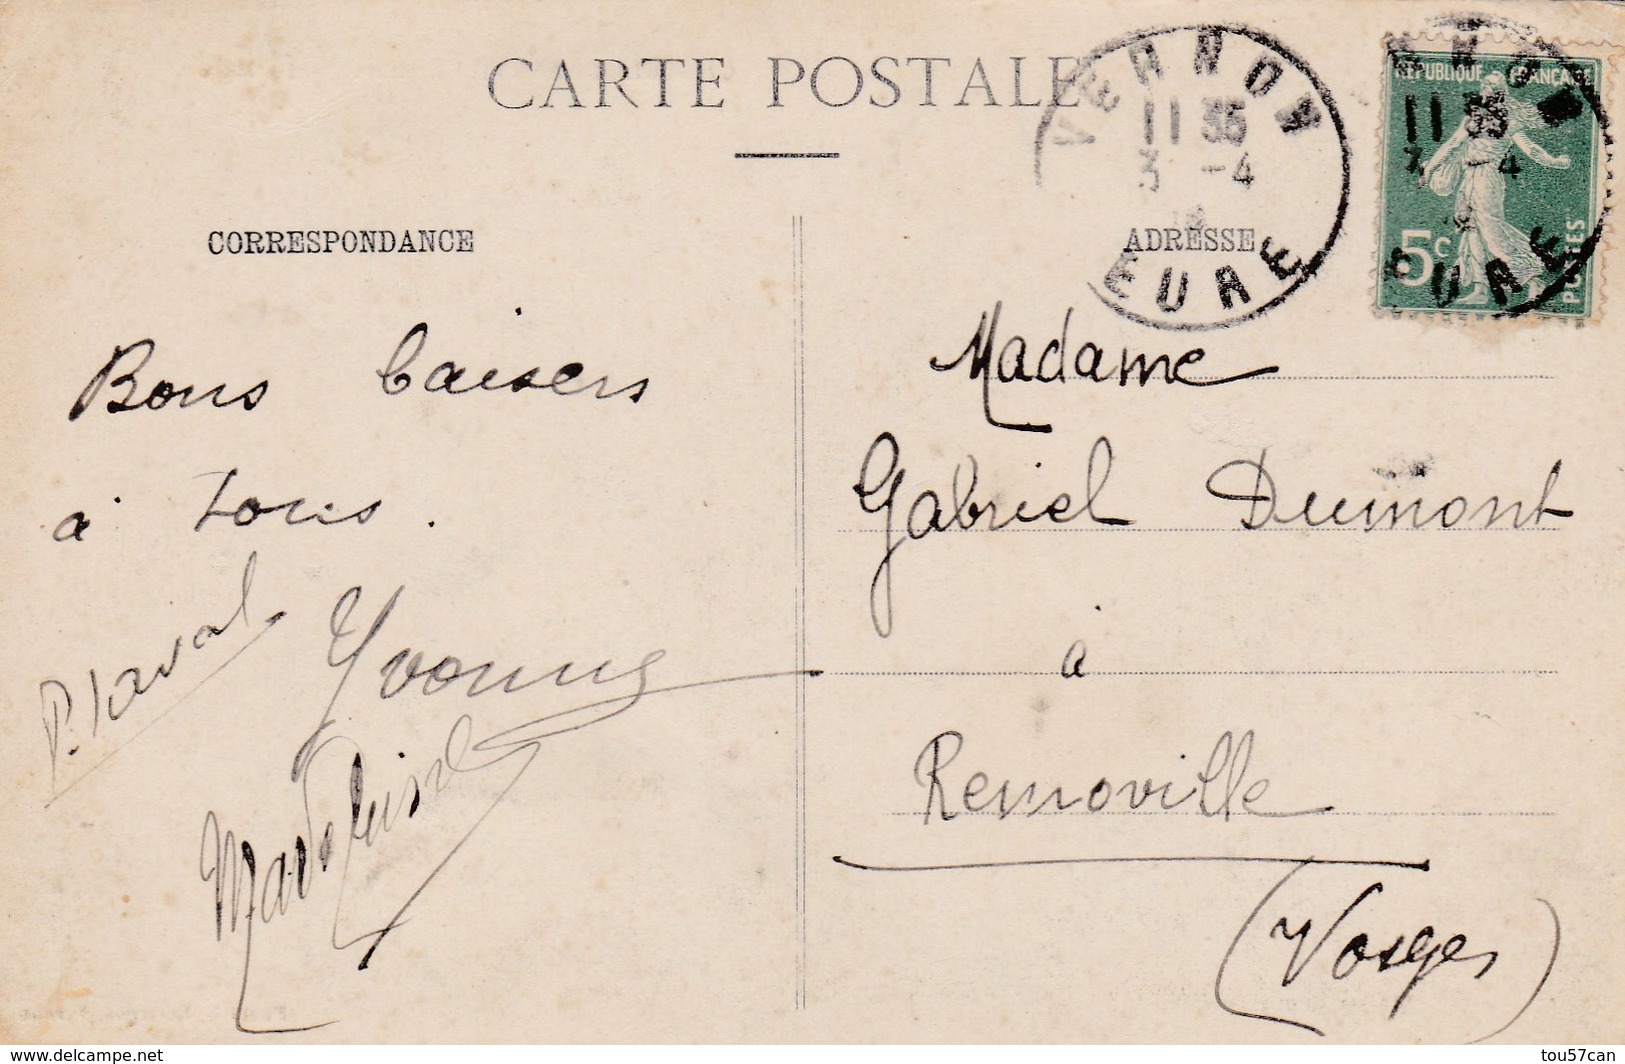 CARTE POSTALE
VERNON
11 35
3 -4
EURE
RÉPUBLIQUE FRANÇAISE
5c
POSTES
11 35
3 -4
EURE
CORRESPONDANCE
Bons baisers
à tous.
P. Laval
Yvonne
Madeleine
ADRESSE
Madame
Gabriel Dumont
à
Removille
(Vosges)
www.delcampe.net
tou57can